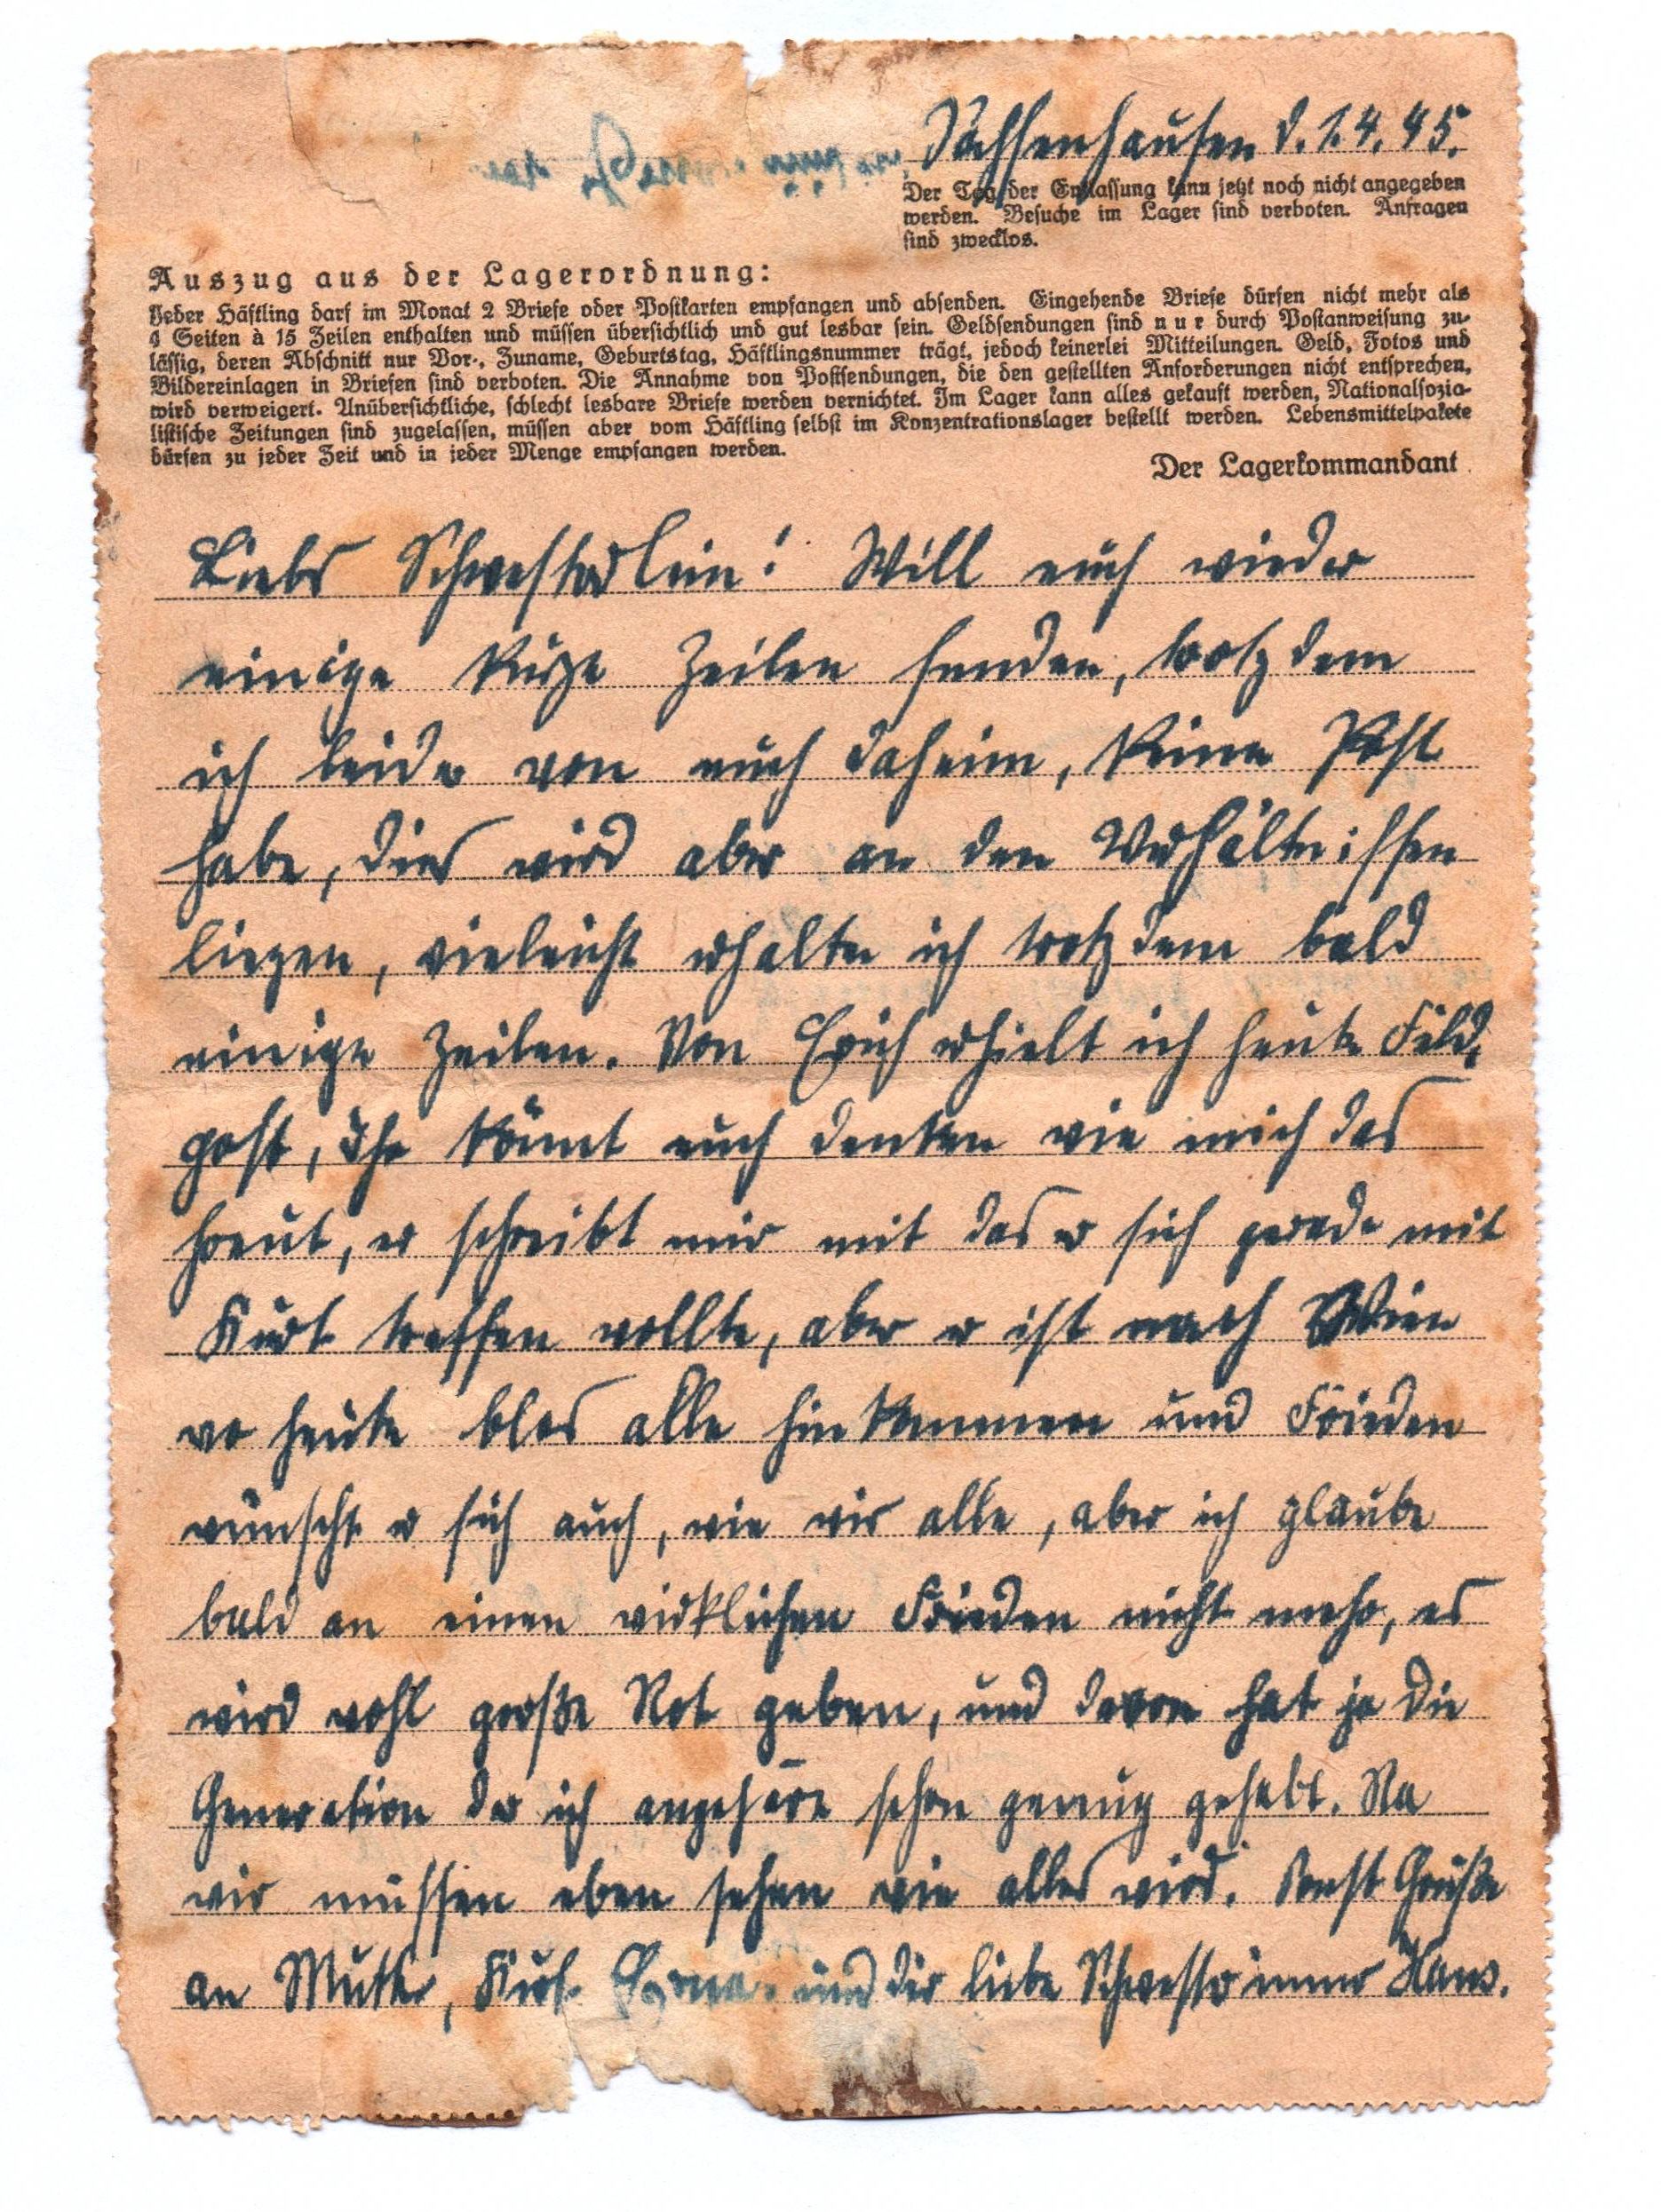 Sachsenhausen d. 1.4.45.
Der Tag der Entlassung kann jetzt noch nicht angegeben
werden. Besuche im Lager sind verboten. Anfragen
sind zwecklos.
Auszug aus der Lagerordnung:
Jeder Häftling darf im Monat 2 Briefe oder Postkarten empfangen und absenden. Eingehende Briefe dürfen nicht mehr als
4 Seiten à 15 Zeilen enthalten und müssen übersichtlich und gut lesbar sein. Geldsendungen sind nur durch Postanweisung zu-
lässig, deren Abschnitt nur Vor-, Zuname, Geburtstag, Häftlingsnummer trägt, jedoch keinerlei Mitteilungen. Geld, Fotos und
Bildereinlagen in Briefen sind verboten. Die Annahme von Postsendungen, die den gestellten Anforderungen nicht entsprechen,
wird verweigert. Unübersichtliche, schlecht lesbare Briefe werden vernichtet. Im Lager kann alles gekauft werden, Nationalsozia-
listische Zeitungen sind zugelassen, müssen aber vom Häftling selbst im Konzentrationslager bestellt werden. Lebensmittelpakete
dürfen zu jeder Zeit und in jeder Menge empfangen werden.
Der Lagerkommandant
Liebs Schwesterlein! Will euch wieder
einige kurze Zeilen senden, trotzdem
ich leider von euch daheim, keine Post
habe, dies wird aber an den Verhältnissen
liegen, vieleicht erhalte ich trotzdem bald
einige Zeilen. Von Erich erhielt ich heute Feld,
post, Ihr könnt euch denken wie mich das
freut, er schreibt mir mit das er sich gerade mit
Kurt treffen wollte, aber er ist nach Wien
wo heute blos alle hinkommen und Frieden
wünscht er sich auch, wie wir alle, aber ich glaube
bald an einen wirklichen Frieden nicht mehr, es
wird wohl große Not geben, und davon hat ja die
Generation der ich angehöre schon genug gehabt. Na
wir müssen eben sehen wie alles wird. Sonst Grüße
an Mutter, Kurt Erna. und dir liebe Schwester immer Hans.